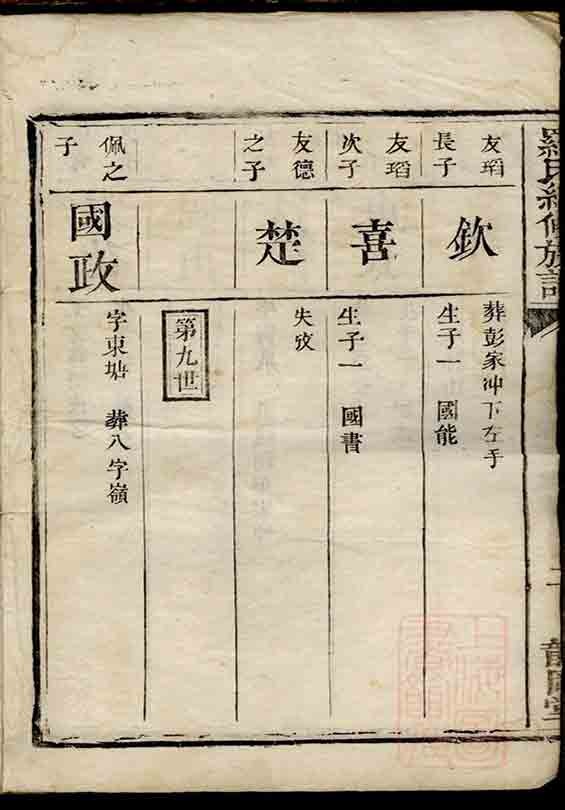 羅氏續修族譜
二
友瑫
長子
欽
葬彭家冲下左手
生子一　國能
友瑫
次子
喜
生子一　國書
友德
之子
楚
失攷
第九世
佩之
子
國政
字東塘　葬八字嶺